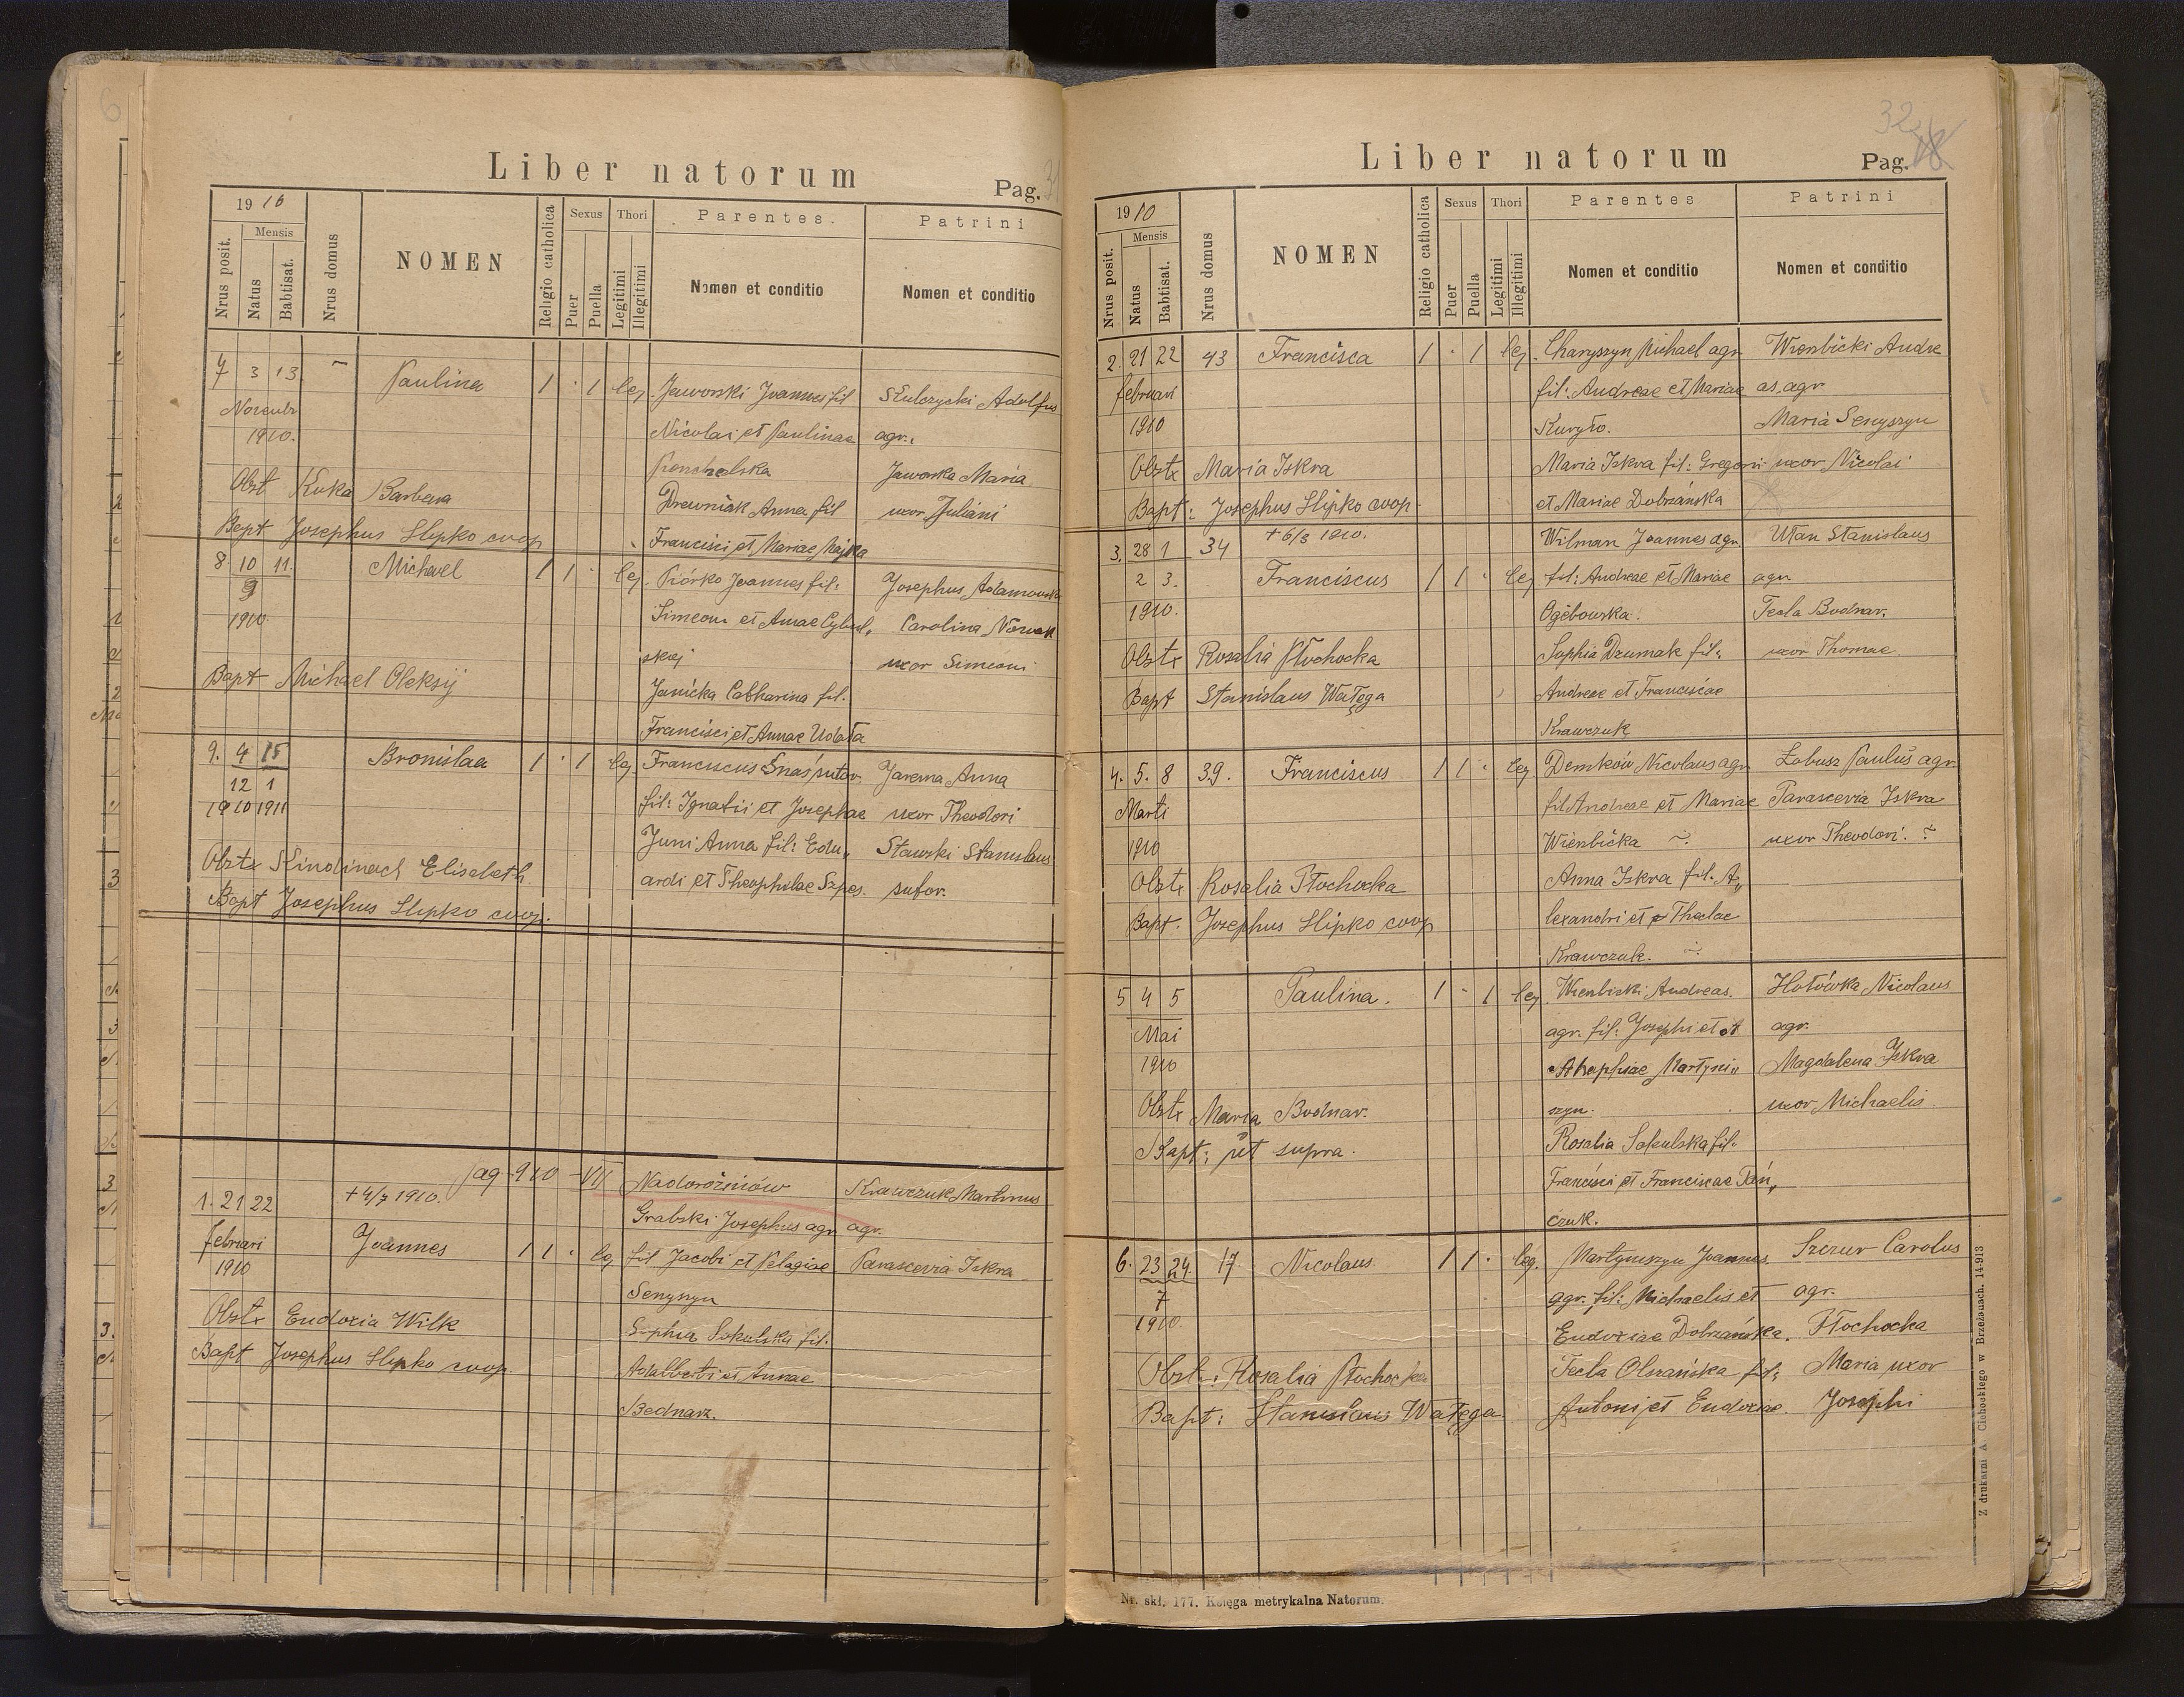 Liber natorum
Pag. 3
1910
Nrus posit.
Mensis
Natus
Babtisat.
Nrus domus
NOMEN
Religio catholica
Sexus
Puer
Puella
Thori
Legitimi
Illegitimi
Parentes.
Nomen et conditio
Patrini
Nomen et conditio
7 3 13 – Paulina 1 · 1 leg. Jaworski Joannes fil Stulczycki Adolfus
Novembr Nicolai et Paulinae agr.
1910. Jaworska Maria
Obst Kuka Barbara Drewniak Anna fil uxor Juliani
Bapt Josephus Slipko coop Francisci et Mariae Majka
8 10 11. Michael 1 1 · leg. Piórko Joannes fil: Josephus Adamowsk
9 Simeoni et Annae Cybul„ Carolina Nowak
1910. skaj uxor Simeoni
Bapt Michael Oleksij Janicka Catharina fil.
Francisci et Annae Udata
9. 4 15 Bronislaa 1 · 1 leg. Franciscus Snaś sutor Jarema Anna
12 1 fil: Ignatii et Josephae uxor Theodori
1910 1911 Juni Anna fil: Edu„ Stawski Stanislaus
Obstx Kindinach Elisabeth ardi et Theophilae Szpes. sutor.
Bapt Josephus Slipko coop.
pag 910 – VII Nadorożniów Krawczuk Martinus
1. 21 22 + 4/7 1910. Grabski Josephus agr agr.
februari Joannes 1 1 · leg fil Jacobi et Pelagiae Parascevia Iskra
1910 Senyszyn
Obstx Eudoxia Wilk Sophia Sokulska fil.
Bapt Josephus Slipko coop Adalberti et Annae
Bednarz.
Liber natorum
32
Pag. 18
1910
Nrus posit.
Mensis
Natus
Babtisat.
Nrus domus
NOMEN
Religio catholica
Sexus
Puer
Puella
Thori
Legitimi
Illegitimi
Parentes
Nomen et conditio
Patrini
Nomen et conditio
2. 21 22 43 Francisca 1 · 1 leg. Charyszyn Michael agr. Wierzbicki Andre
februari fil: Andreae et Mariae as, agr.
1910 Kuryło. Maria Senyszyn
Obstx Maria Iskra Maria Iskra fil: Gregorii uxor Nicolai
Bapt: Josephus Slipko coop. et Mariae Dobrzańska
+ 6/3 1910.
3. 28 1 34 Wilman Joannes agr. Utan Stanislaus
2 3. Franciscus 1 1 · leg fil: Andreae et Mariae agr.
1910. Ogębowska. Tecla Bodnar,
Obstx Rosalia Płochocka Sophia Dzumak fil: uxor Thomae.
Bapt Stanislaus Watęga Andreae et Franciscae
Krawczuk
4. 5. 8 39. Franciscus 1 1 · leg Demków Nicolaus agr Łobusz Paulus agr
Marti fil Andreae et Mariae Parascevia Iskra
1910 Wierzbicka uxor Theodori.
Obstx Rosalia Płochocka Anna Iskra fil. A„
Bapt. Josephus Slipko coop lexandri et Theclae
Krawczuk.
5 4 5 Paulina. 1 · 1 leg. Wierzbicki Andreas. Hołówka Nicolaus
Mai agr. fil: Josephi et agr.
1910 Martyni„ Magdalena Iskra
Obstx Maria Bodnar. szyn. uxor Michaelis.
Bapt: ut supra. Rosalia Sokulska fil.
Francisci et Franciscae Pań„
czuk.
6. 23 24. 17. Nicolaus. 1 1 · leg. Martyniszyn Joannes. Szczur Carolus
7 agr. fil: Michaelis et agr.
1910. Eudoxiae Dobrzańska. Płochocka
Obst: Rosalia Płochocka Tecla Olszańska fil: Maria uxor
Bapt: Stanislaus Watęga Antoni et Eudoxiae. Josephi
Nr. skł. 177. Księga metrykalna Natorum.
Z drukarni A. Cichockiego w Brzeżanach. 14.913